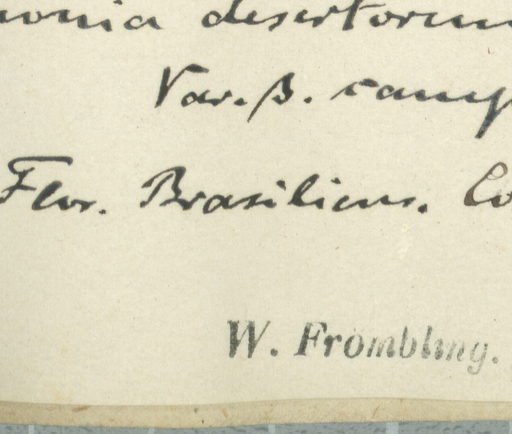 nonia desertorum
Var. β. camp
Flor. Brasiliens. Co
W. Frombling.